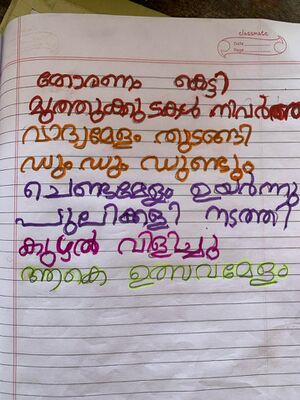 classmate
Date
Page
തോരണം കെട്ടി
മുത്തുക്കുടകൾ നിവർത്തി
വാദ്യമേളം തുടങ്ങി
ഡും ഡും ഡുണ്ടും
ചെണ്ടമേളം ഉയർന്നു
പുലിക്കളി നടത്തി
കുഴൽ വിളിച്ചു
ആകെ ഉത്സവമേളം